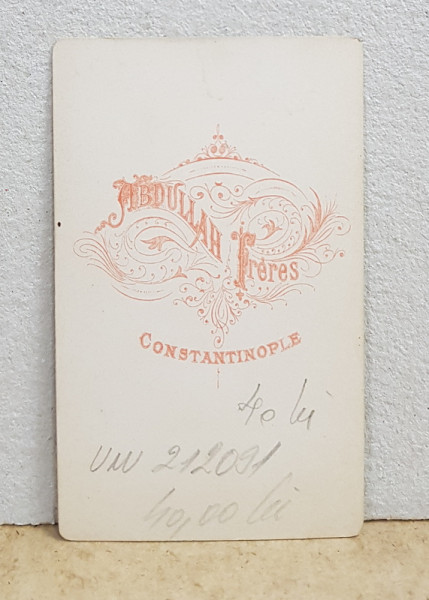 ABDULLAH Frères
CONSTANTINOPLE
40 lei
VW 212091
40,00 lei